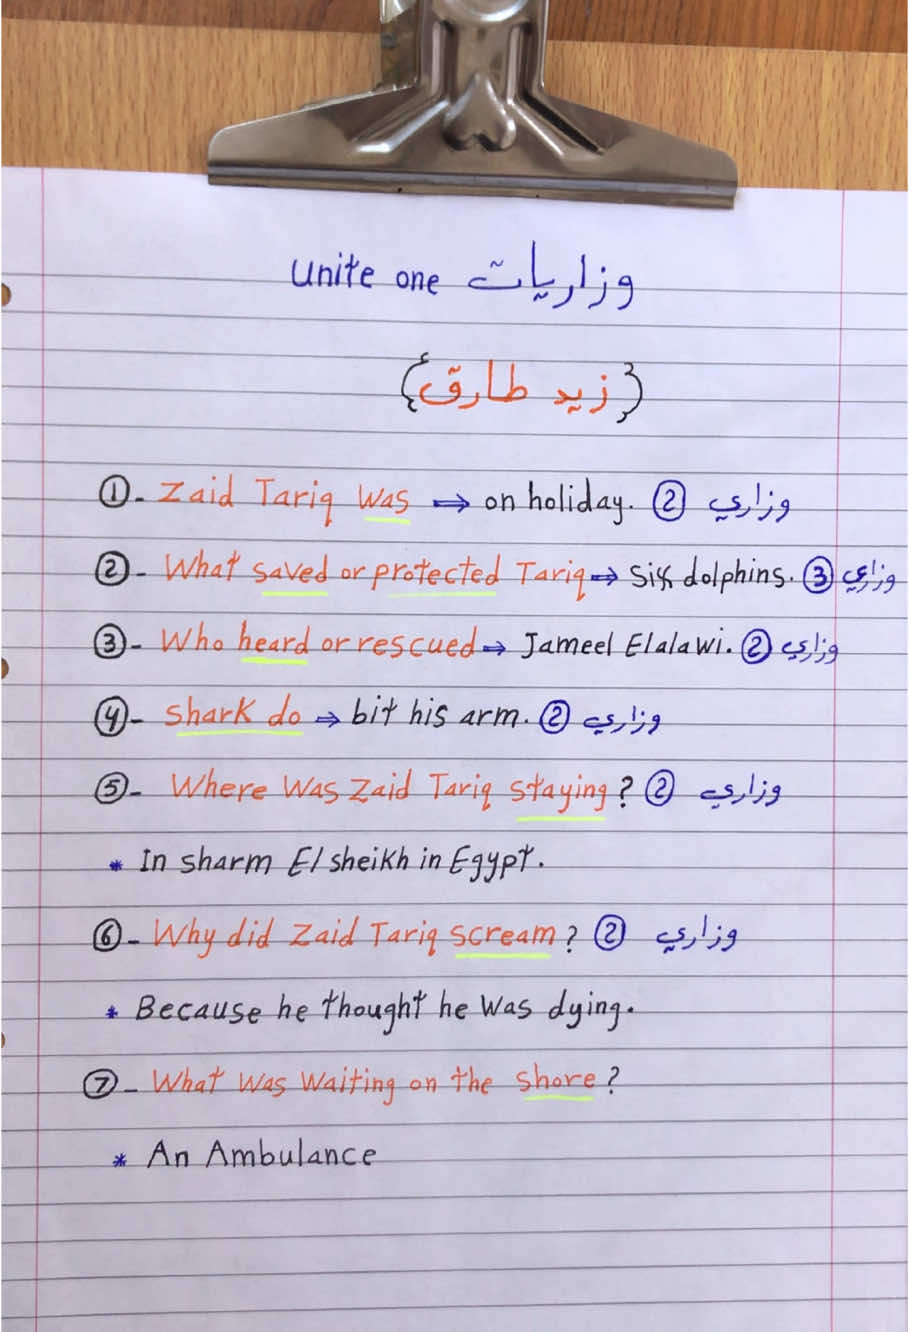 Unite one وزاريات
{زيد طارق}
①- Zaid Tariq was ⇒ on holiday. ② وزاري
②- What saved or protected Tariq ⇒ Six dolphins. ③ وزاري
③- Who heard or rescued ⇒ Jameel Elalawi. ② وزاري
④- shark do ⇒ bit his arm. ② وزاري
⑤- Where Was Zaid Tariq staying? ② وزاري
* In sharm El sheikh in Egypt.
⑥- Why did Zaid Tariq scream? ② وزاري
* Because he thought he was dying.
⑦- What Was Waiting on the shore?
* An Ambulance